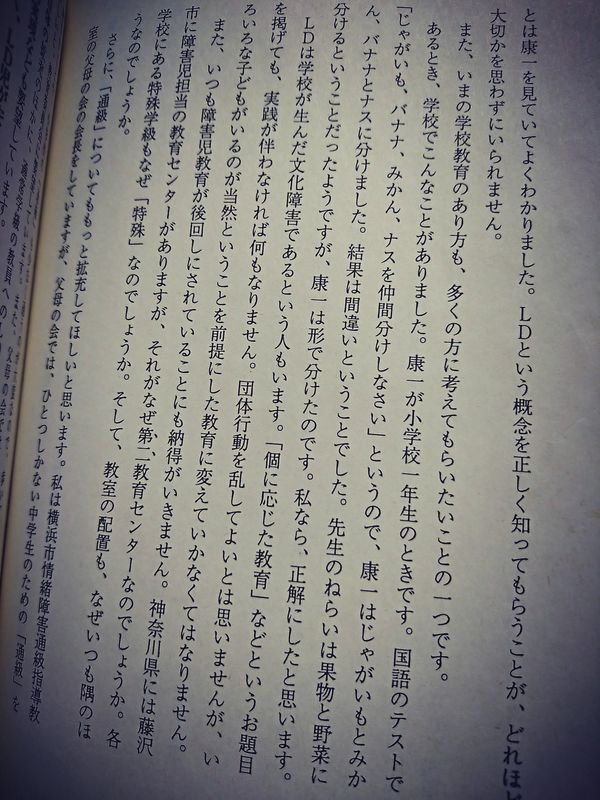 とは康一を見ていてよくわかりました。LDという概念を正しく知ってもらうことが、どれほど
大切かを思わずにいられません。
また、いまの学校教育のあり方も、多くの方に考えてもらいたいことの一つです。
あるとき、学校でこんなことがありました。康一が小学校一年生のときです。国語のテストで
「じゃがいも、バナナ、みかん、ナスを仲間分けしなさい」というので、康一はじゃがいもとみか
ん、バナナとナスに分けました。結果は間違いということでした。先生のねらいは果物と野菜に
分けるということだったようですが、康一は形で分けたのです。私なら、正解にしたと思います。
LDは学校が生んだ文化障害であるという人もいます。「個に応じた教育」などというお題目
を掲げても、実践が伴わなければ何もなりません。団体行動を乱してよいとは思いませんが、い
ろいろな子どもがいるのが当然ということを前提にした教育に変えていかなくてはなりません。
また、いつも障害児教育が後回しにされていることにも納得がいきません。神奈川県には藤沢
市に障害児担当の教育センターがありますが、それがなぜ、第二教育センターなのでしょうか。各
学校にある特殊学級もなぜ「特殊」なのでしょうか。そして、教室の配置も、なぜいつも隅のほ
うなのでしょうか。
さらに、「通級」についてももっと拡充してほしいと思います。私は横浜市情緒障害通級指導教
室の父母の会の会長をしていますが、父母の会では、ひとつしかない中学生のための「通級」を